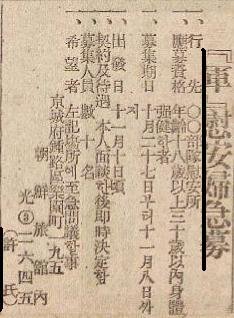 『軍』慰安婦急募
一、行先 〇〇部隊慰安所
一、應募資格 年齡十八歲以上三十歲以內身體
强健한者
一、募集期日 十月二十七日부터十一月八日까
지
一、出發日 十一月十日頃
一、契約及待遇 本人面談한後卽時決定함
一、募集人員 數十名
一、希望者 左記場所에至急問議할事
京城府鍾路區樂園町一九五
朝鮮旅館內
光③二六四五
(許氏)